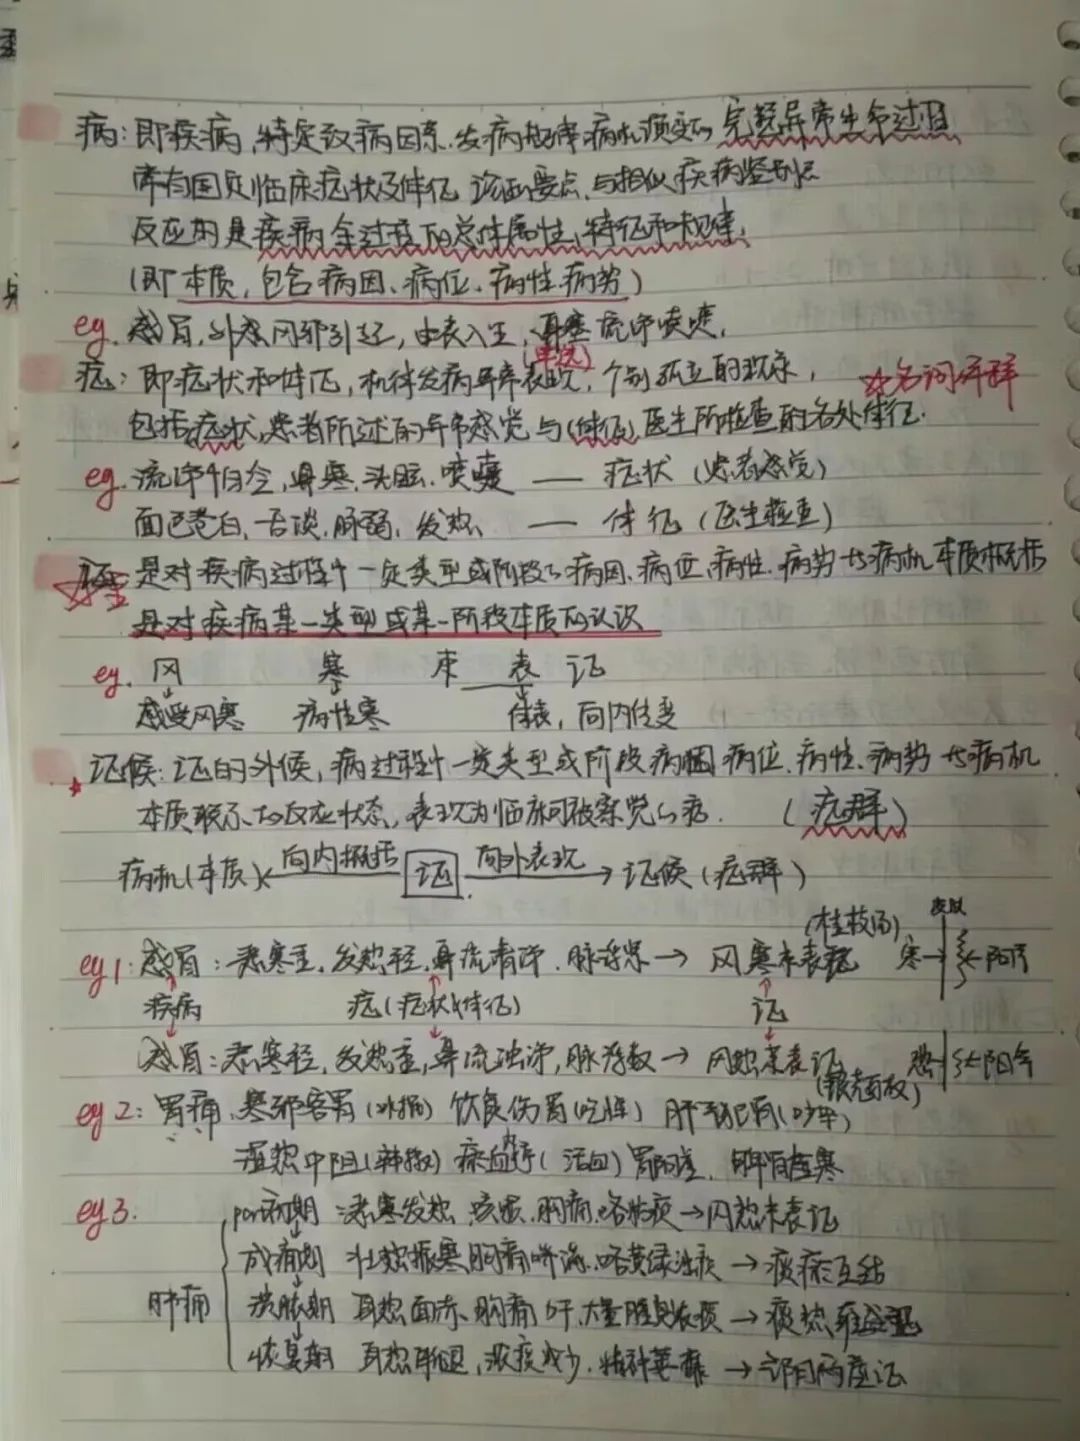 病：即疾病，特定致病因素，发病规律病机演变的完整异常生命过程
常有固定临床症状及体征 诊断要点，与相似疾病鉴别点
反应的是疾病全过程的总体属性，特征和规律，
（即本质，包含病因、病位、病性 病势）
eg. 感冒，外感风邪引起，由表入里，鼻塞流涕喷嚏，
症：即症状和体征，机体发病异常表现，个别孤立的现象， ☆名词解释
(单选)
包括症状，患者所述的异常感觉与（体征）医生所检查的各处体征.
eg. 流涕 鼻塞，头眩，喷嚏 —— 症状（患者感觉）
面色苍白，舌淡，脉弱，发热 —— 体征（医生检查）
证 是对疾病过程中一定类型或阶段的病因，病位，病性，病势与病机本质概括
是对疾病某一类型或某一阶段本质的认识
eg. 风 寒 束 表 证
感受风寒 病性寒 体表，向内传变
★证候：证的外候，病过程中一定类型或阶段病因 病位，病性，病势与病机
本质 反应状态，表现为临床可被察觉的症. （症群）
病机（本质）← 向内概括 证 向外表现 → 证候（症群）
(桂枝汤) 皮肤
eg1：感冒：恶寒重，发热轻，鼻流清涕，脉浮紧→ 风寒束表证 寒→ ←阳气
疾病 症（症状体征） 证
感冒：恶寒轻，发热重，鼻流浊涕，脉浮数→ 风热束表证 热 ←阳气
(银翘散)
eg2：胃痛，寒邪客胃 饮食伤胃 肝气犯胃
湿热中阻 瘀血 （活血） 胃阴虚，脾胃虚寒
eg3. 初期 恶寒发热，咳嗽，胸痛，咯 痰→风热束表证
成痈期 壮热振寒 胸痛 咯黄绿浊痰 → 痰瘀互结
肺痈 溃脓期 身热面赤，胸痛 大量腥臭脓痰 → 痰热
恢复期 身热渐退，浓痰减少，精神萎靡 → 气阴两虚证